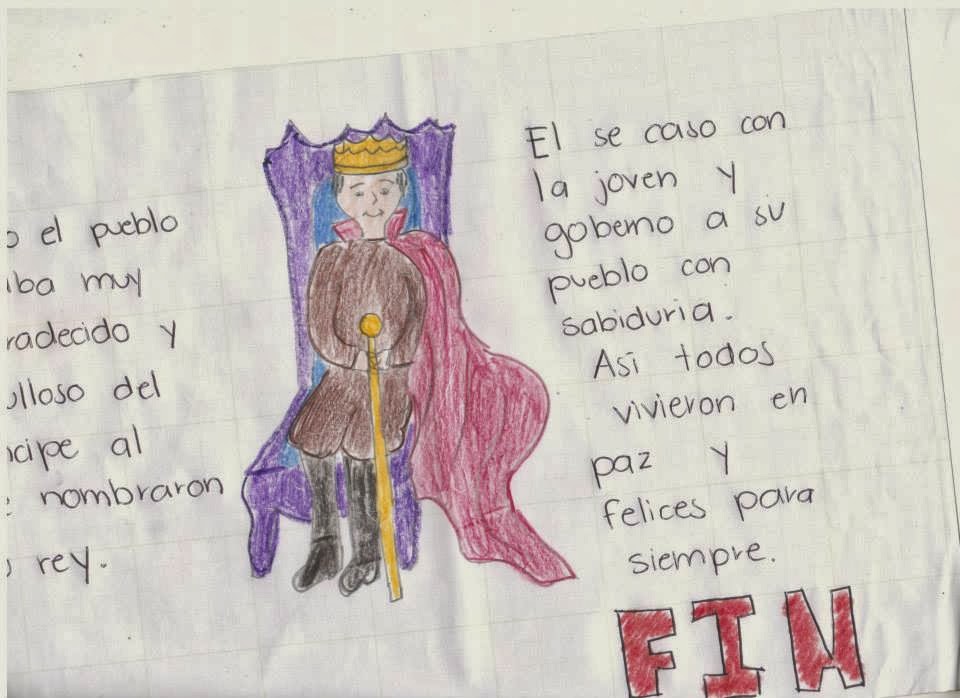 o el pueblo
aba muy
radecido y
ulloso del
ncipe al
e nombraron
o rey.
El se caso con
la joven y
goberno a su
pueblo con
sabiduria.
Asi todos
vivieron en
paz y
felices para
siempre.
FIN